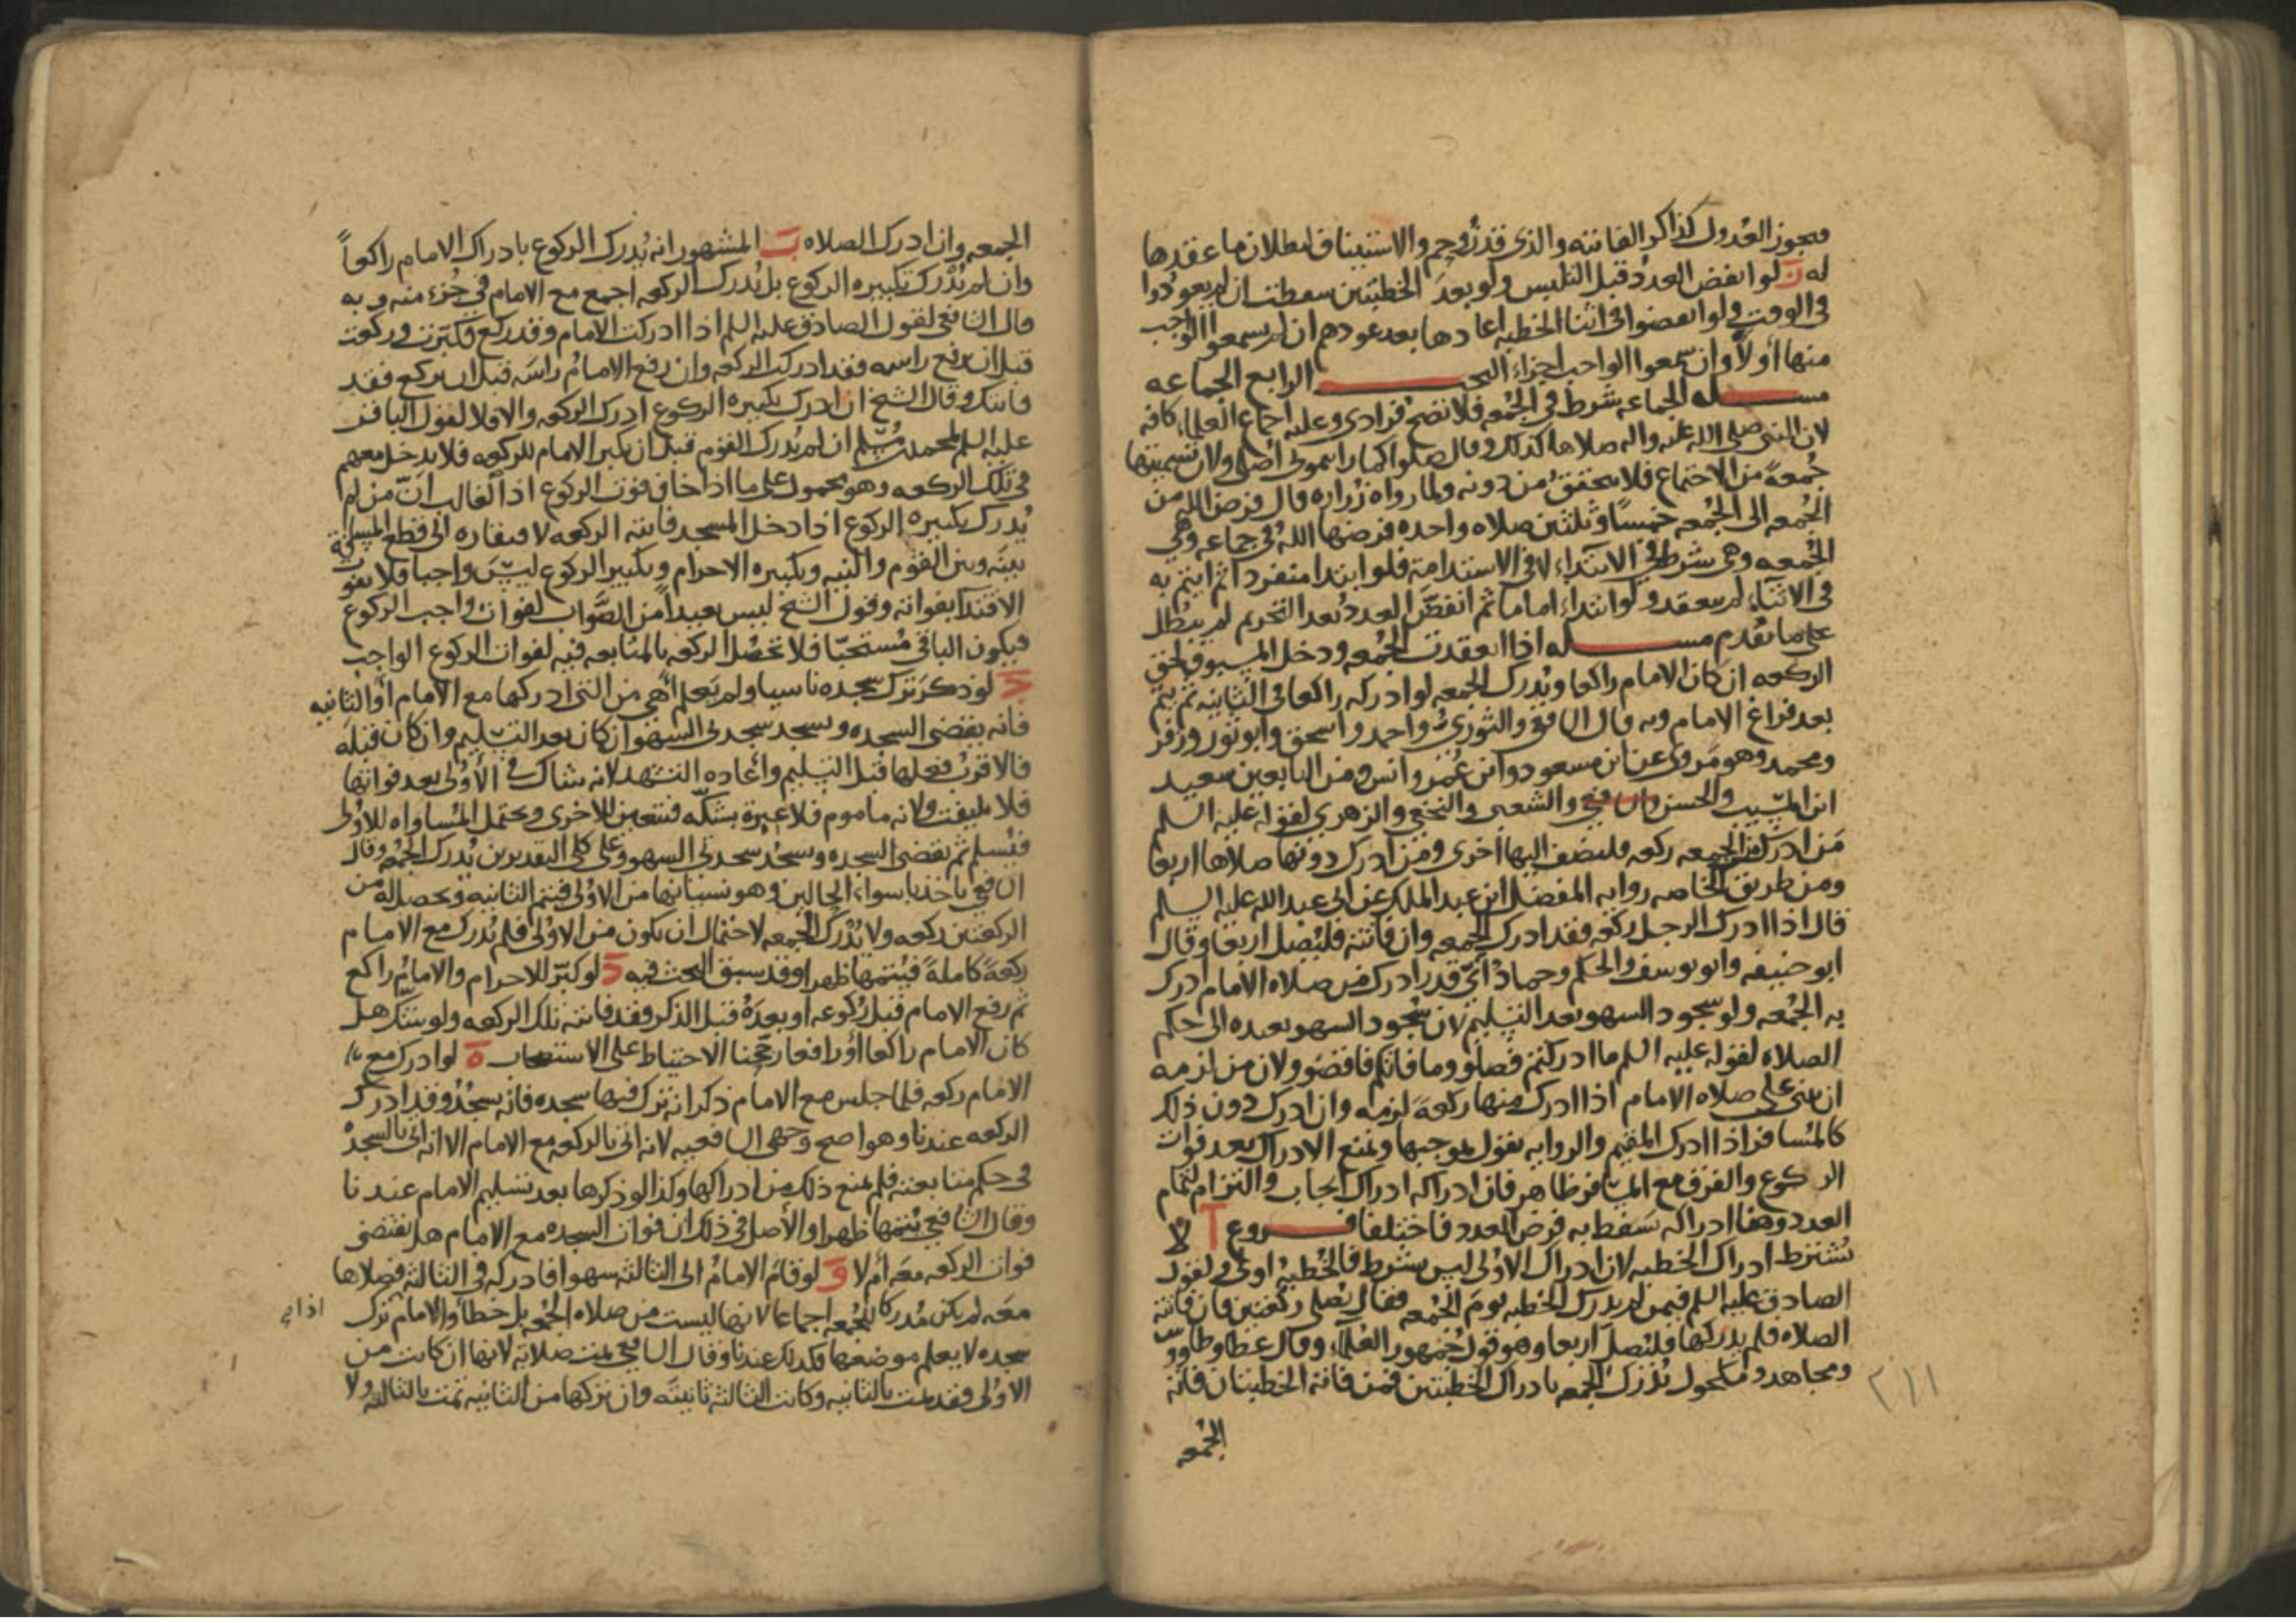 فيجوز العدول كذاكر الفائته والذي قد زوحم والاستيناف لبطلان ما عقدها
له ز لو انفض العدد قبل التلبس ولو بعد الخطبتين سقطت ان لم يعودوا
في الوقت ولو انفضوا في اثنا الخطبه اعادها بعد عودهم ان لم يسمعوا الواجب
منها اولا وان سمعوا الواجب اجزاء البحث الرابع الجماعه
مسله الجماعه شرط في الجمعه فلا تصح فرادى وعليه اجماع العلماء كافه
لان النبي صلى الله عليه واله صلاها كذلك وقال صلوا كما رايتموني اصلي ولان تسميتها
جمعة من الاجتماع فلا يتحقق من دونه ولما رواه زراره قال فرض الله من
الجمعه الى الجمعه خمسا وثلثين صلاه واحده فرضها الله في جماعه وهي
الجمعه وهي شرط في الابتداء لا في الاستدامة فلو ابتدا منفردا ثم ايتم به
في الاثناء لم ينعقد ولو ابتداء اماما ثم انفض العدد بعد التحريم لم يبطل
على ما تقدم مسله اذا انعقدت الجمعه ودخل المسبوق لحق
الركعه ان كان الامام راكعا ويدرك الجمعه لو ادركه راكعا في الثانيه ثم يتم
بعد فراغ الامام وبه قال الشافعي والثوري واحمد واسحق وابو ثور وزفر
ومحمد وهو مروي عن ابن مسعود وابن عمر وانس ومن التابعين سعيد
ابن المسيب والحسن والشعبي والنخعي والزهري لقوله عليه السلم
من ادرك من الجمعه ركعه فليضف اليها اخرى ومن ادرك دونها صلاها اربعا
ومن طريق الخاصه روايه المفضل ابن عبد الملك عن ابي عبد الله عليه السلم
قال اذا ادرك الرجل ركعه فقد ادرك الجمعه وان فاتته فليصل اربعا وقال
ابو حنيفه وابو يوسف والحكم وحماد اي قدر ادرك من صلاه الامام ادرك
به الجمعه ولو سجود السهو بعد التسليم لان سجود السهو يعيده الى حكم
الصلاه لقوله عليه السلم ما ادركتم فصلو وما فاتكم فاقضو ولان من لزمه
ان يبني على صلاه الامام اذا ادرك منها ركعة لزمه وان ادرك دون ذلك
كالمسافر اذا ادرك المقيم والروايه نقول بموجبها ونمنع الادراك بعد فوات
الركوع والفرق مع المسافر ظاهر فان ادراكه ادراك ايجاب والتزام لتمام
العدد وهنا ادراكه سقط به فرض العدد فاختلفا فروع ا لا
يشترط ادراك الخطبه لان ادراك الاولى ليس بشرط فالخطبه اولى ولقول
الصادق عليه السلم فيمن لم يدرك الخطبه يوم الجمعه فقال يصلي ركعتين فان فاتته
الصلاه فلم يدركها فليصل اربعا وهو قول جمهور العلماء وقال عطا وطاوس
ومجاهد ومكحول يدرك الجمعه بادراك الخطبتين فمن فاتته الخطبتان فاته
٢١١
الجمعه
الجمعه وان ادرك الصلاه ب المشهور انه يدرك الركوع بادراك الامام راكعا
وان لم يدرك تكبيره الركوع بل يدرك الركعه اجمع مع الامام في جزء منه وبه
قال الشافعي لقول الصادق عليه السلم اذا ادركت الامام وقد ركع فكبرت وركعت
قبل ان يرفع راسه فقد ادركت الركعه وان رفع الامام راسه قبل ان يركع فقد
فاتتك وقال الشيخ ان ادرك تكبيره الركوع ادرك الركعه والا فلا لقول الباقر
عليه السلم لمحمد بن مسلم ان لم يدرك القوم قبل ان يكبر الامام للركعه فلا يدخل معهم
في تلك الركعه وهو محمول على ما اذا خاف فوت الركوع اذ الغالب ان من لم
يدرك تكبيره الركوع اذا دخل المسجد فاتته الركعه لافتقاره الى قطع المسافة
بينه وبين القوم والنيه وتكبيره الاحرام وتكبير الركوع ليس واجبا فلا يفوت
الاقتدآ بفواته وقول الشيخ ليس بعيدا من الصواب لفوات واجب الركوع
فيكون الباقي مستحبا فلا تحصل الركعه بالمتابعه فيه لفوات الركوع الواجب
ج لو ذكر ترك سجده ناسيا ولم يعلم اهي من التي ادركها مع الامام او الثانيه
فانه يقضي السجده ويسجد سجدتي السهو ان كان بعد التسليم وان كان قبله
فالاقرب فعلها قبل التسليم واعاده التشهد لانه شاك في الاولى بعد فواتها
فلا يلتفت ولانه ماموم فلا عبرة بشكه فتتعين للاخرى ويحتمل المساواه للاولى
فيسلم ثم يقضي السجده ويسجد سجدتي السهو وعلى كلي التقديرين يدرك الجمعه وقال
الشافعي ياخذ باسواء الحالين وهو نسيانها من الاولى فيتم الثانيه ويحصل له من
الركعتين ركعه ولا يدرك الجمعه لاحتمال ان يكون من الاولى فلم يدرك مع الامام
ركعة كاملة فيتمها ظهرا وقد سبق البحث فيه د لو كبر للاحرام والامام راكع
ثم رفع الامام قبل ركوعه او بعده قبل الذكر فقد فاتته تلك الركعه ولو شك هل
كان الامام راكعا او رافعا رجحنا الاحتياط على الاستصحاب ه لو ادرك مع
الامام ركعه فلما جلس مع الامام ذكر انه ترك فيها سجده فانه يسجد وقد ادرك
الركعه عندنا وهو اصح وجهي الشافعيه لانه اتى بالركعه مع الامام الا انه اتى بالسجدة
في حكم متابعته فلم يمنع ذلك من ادراكها وكذا لو ذكرها بعد تسليم الامام عندنا
وقال الشافعي يتمها ظهرا والاصل في ذلك ان فوات السجده مع الامام هل يقتضي
فوات الركعه معه ام لا و لو قام الامام الى الثالثه سهوا فادركه في الثالثه فصلاها
معه لم يكن مدركا للجمعه اجماعا لانها ليست من صلاه الجمعه بل خطأ والامام ترك
سجده لا يعلم موضعها فكذلك عندنا وقال الشافعي تمت صلاته لانها ان كانت من
الاولى فقد تمت بالثانيه وكانت الثالثه ثانيته وان تركها من الثانيه تمت بالثالثه ولا